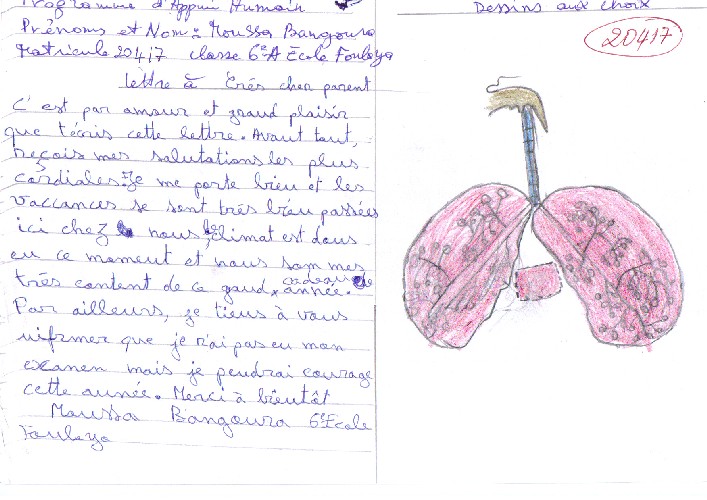 Programme d'Appui Humain
Prénoms et Nom: Moussa Bangoura
Matricule 20417 classe 6eA École Fouleya
lettre à très cher parent
C'est par amour et grand plaisir
que t'écris cette lettre. Avant tout,
reçois mes salutations les plus
cordiales. Je me porte bien et les
vaccances se sont très bien passées
ici chez nous, le climat est dous
en ce moment et nous sommes
très content de ce gand cadeau de
année.
Par ailleurs, je tiens à vous
nifirmer que je n'ai pas eu mon
examen mais je pendrai courage
cette année. Merci à bientôt
Moussa Bangoura 6e École
Fouleya
Dessins aux choix
20417